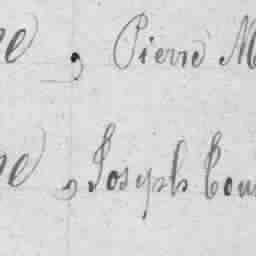 , Pierre M
, Joseph Cou